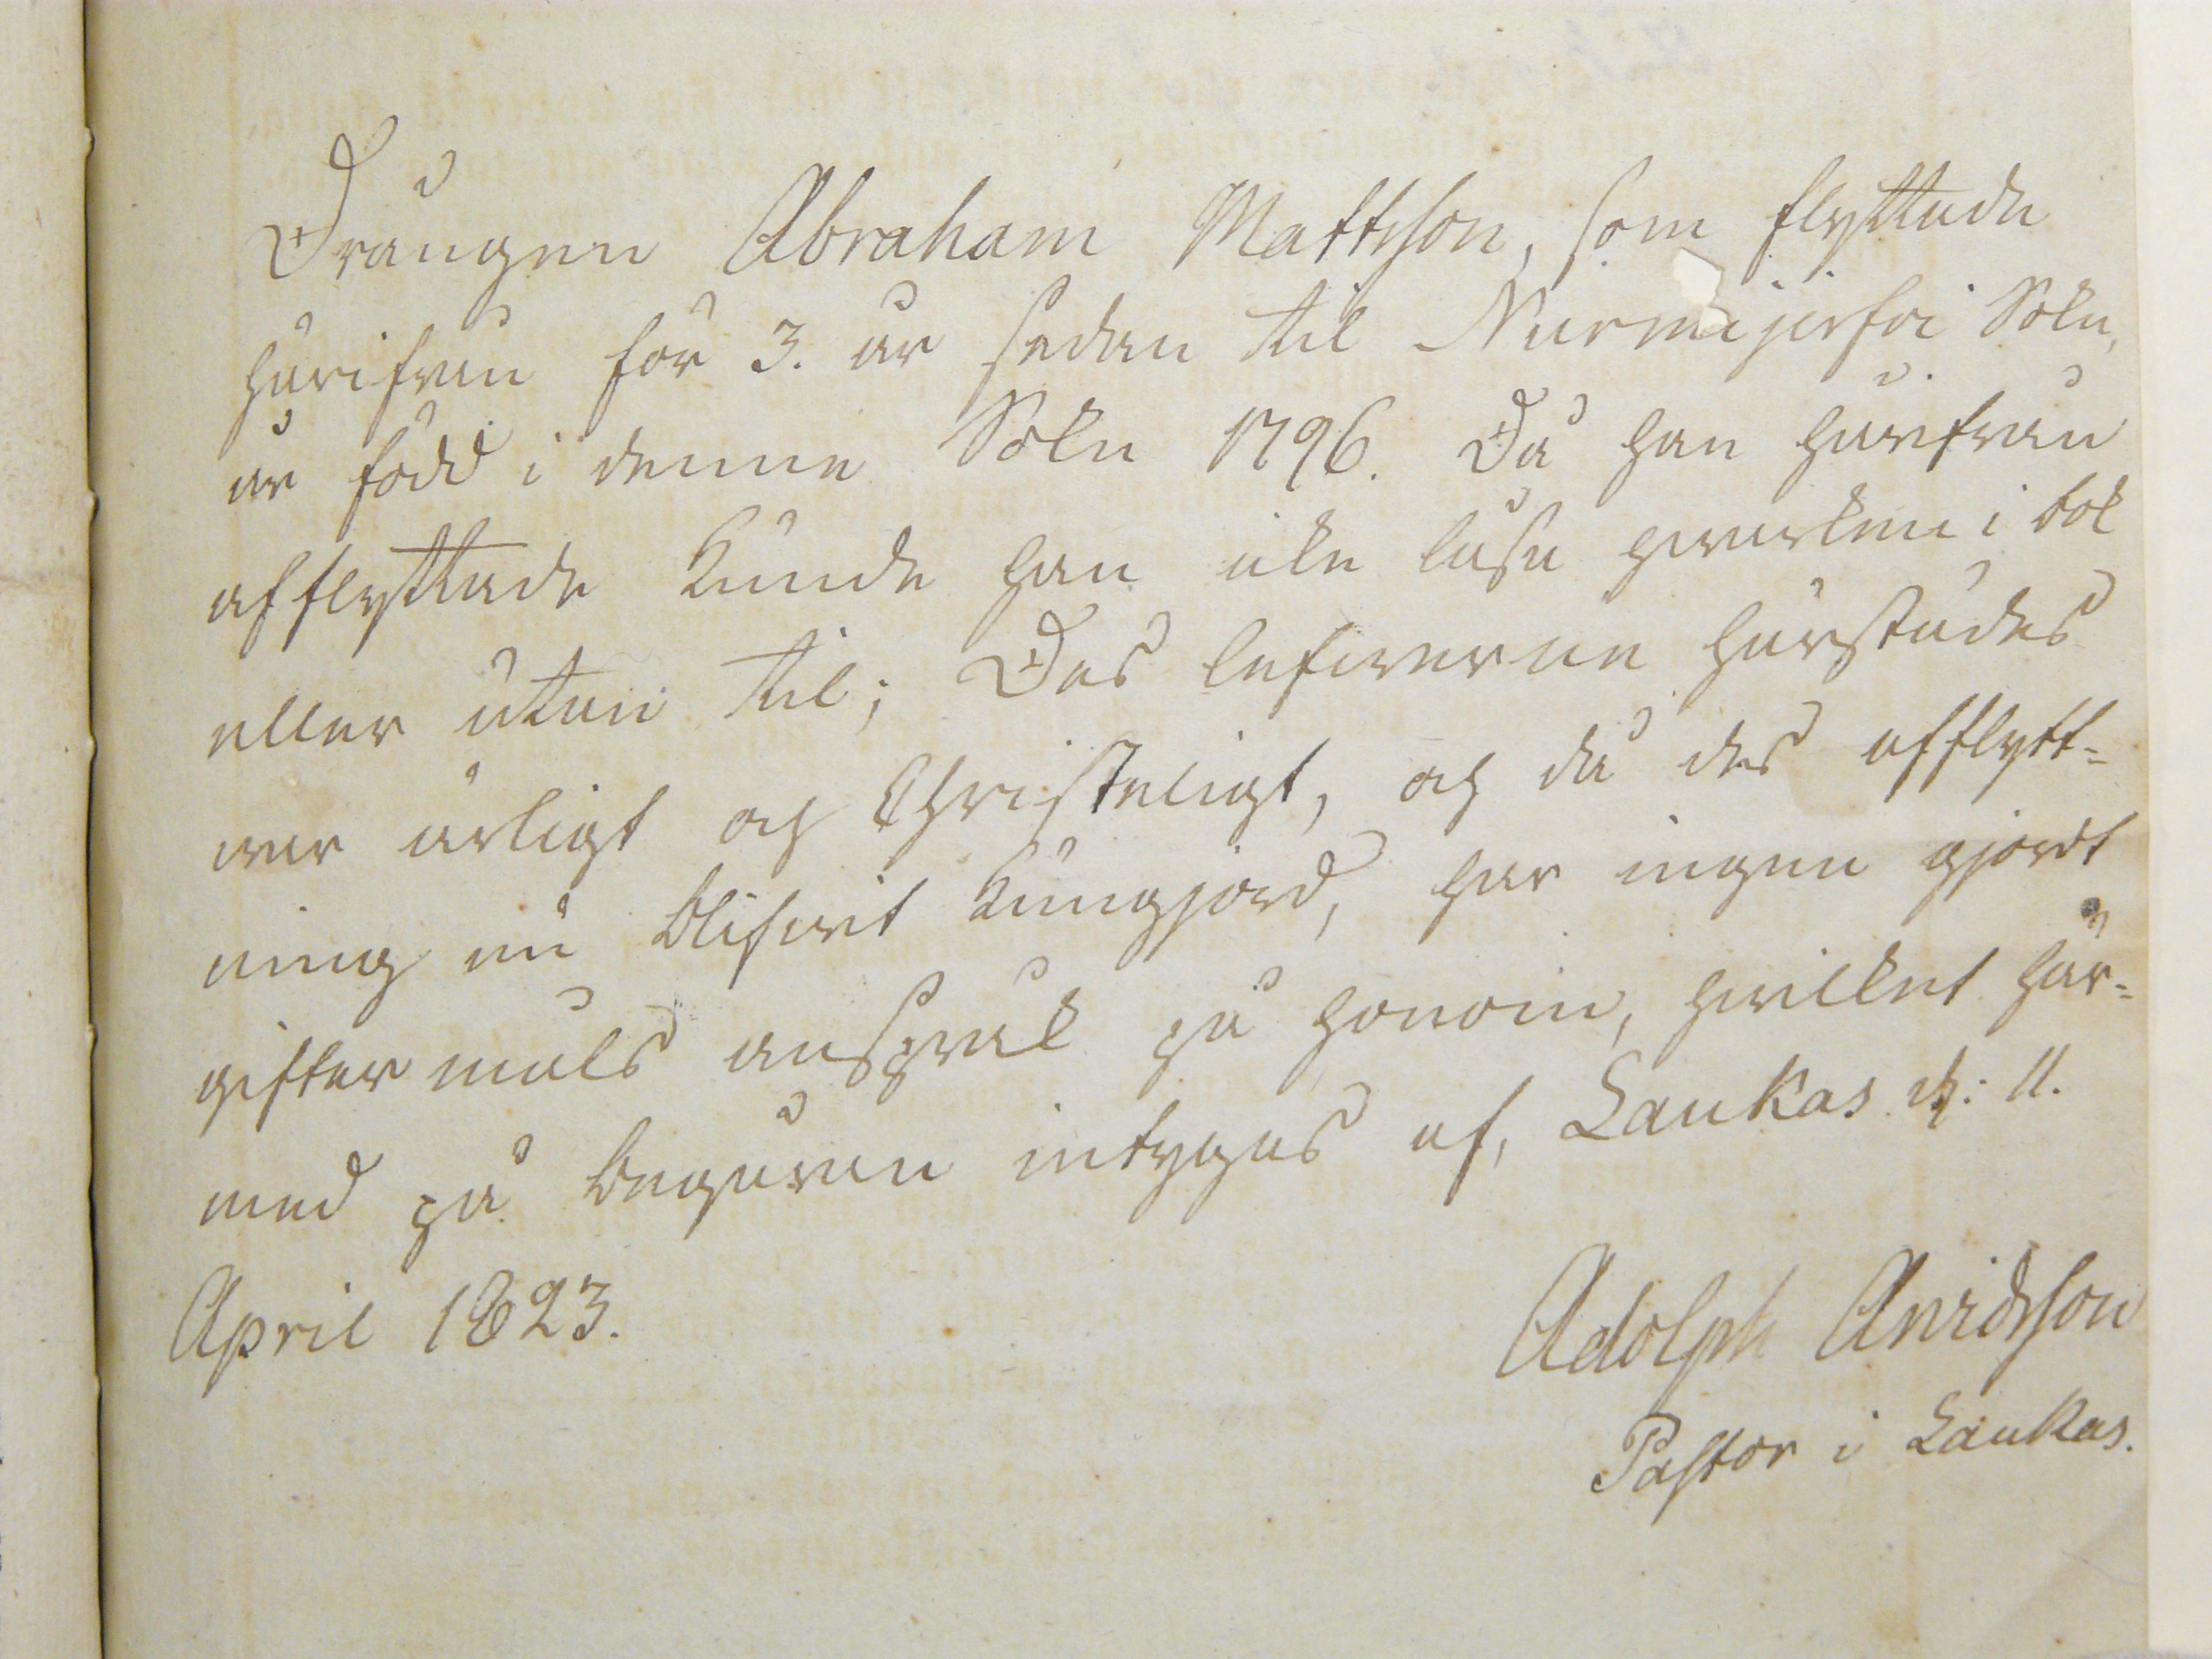 Drängen Abraham Mattsson, som flyttade
härifrån för 3. år sedan til Nurmijerfvi Sokn,
är född i denne Sokn 1796. Då han härifrån
afflyttade kunde han icke läsa hvarken i bok
eller utan til; Des lefverne härstädes
var ärligt och Christeligt, och då des afflytt-
ning nu blifvit kungjord, har ingen gjordt
giftermåls anspråk på honom, hvilket här-
med på begäran intygas af, Laukas d: 11.
April 1823.
Adolph Arvidsson
Pastor i Laukas.